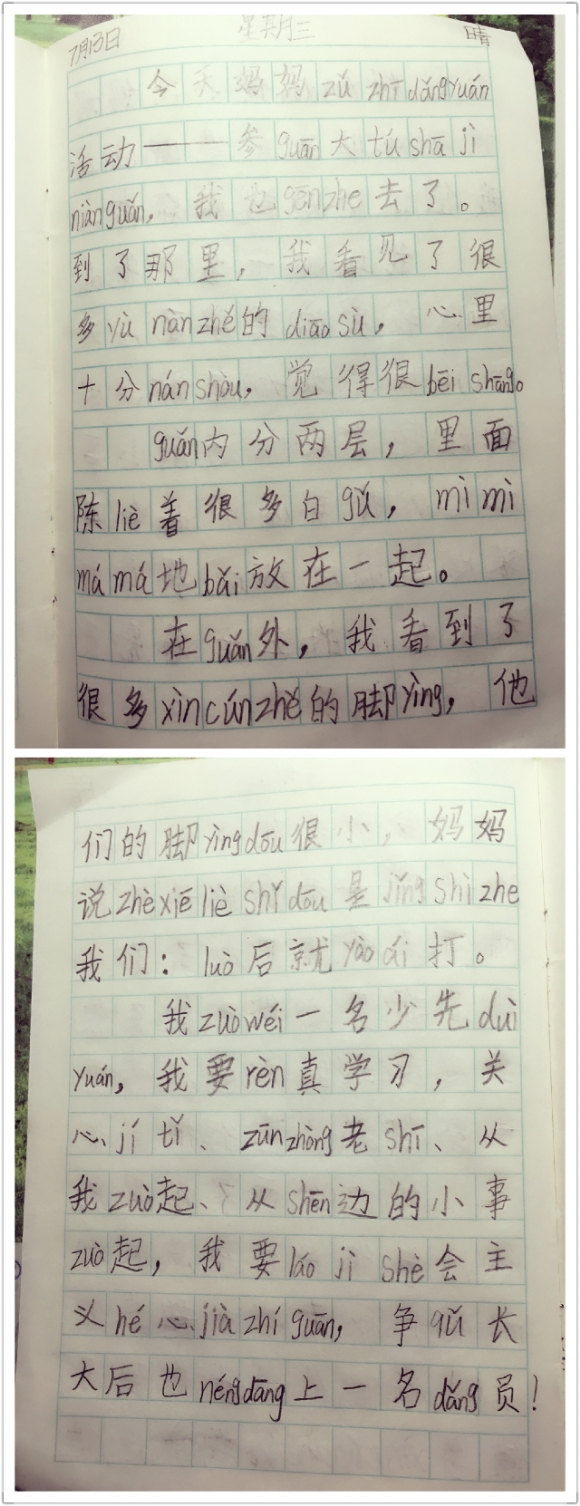 7月13日 星期三 晴
今天妈妈zǔ zhī dǎngyuán
活动——参guān大tú shā jì
niànguǎn，我也gēnzhe去了。
到了那里，我看见了很
多yù nànzhě的diāo sù，心里
十分nánshòu，觉得很bēi shāng。
guǎn内分两层，里面
陈liè着很多白gǔ，mì mì
má má地bǎi放在一起。
在guǎn外，我看到了
很多xìncúnzhě的脚yìng，他
们的脚yìngdōu很小，妈妈
说zhèxiē liè shì dōu是jǐng shì zhe
我们：luò后就yào ái打。
我zuòwéi一名少先duì
yuán，我要rèn真学习，关
心jí tǐ、zūnzhòng老shī、从
我zuò起、从shēn边的小事
zuò起，我要láo jì shè会主
义hé心jià zhí guān，争qǔ长
大后也néngdāng上一名dǎng员！